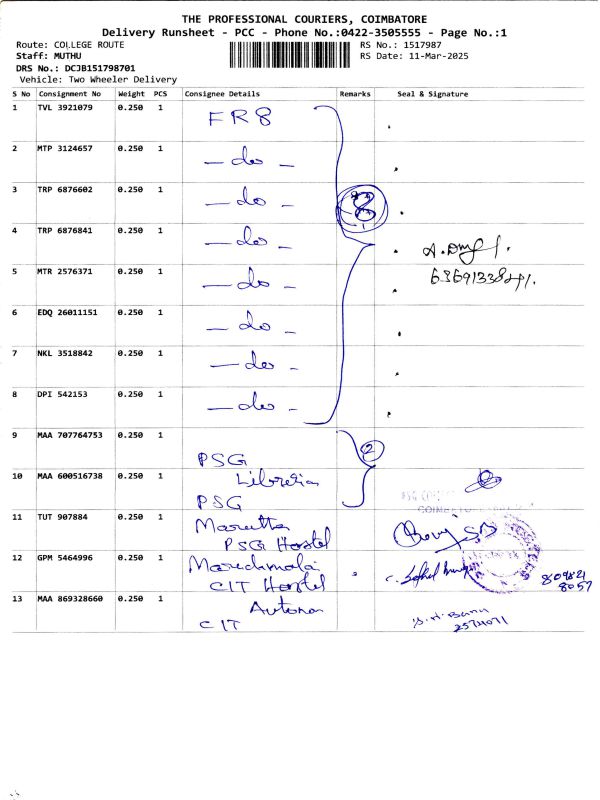 THE PROFESSIONAL COURIERS, COIMBATORE
Delivery Runsheet - PCC - Phone No.:0422-3505555 - Page No.:1
Route: COLLEGE ROUTE RS No.: 1517987
Staff: MUTHU RS Date: 11-Mar-2025
DRS No.: DCJB151798701
Vehicle: Two Wheeler Delivery
S No Consignment No Weight PCS Consignee Details Remarks Seal & Signature
1 TVL 3921079 0.250 1 FR8
2 MTP 3124657 0.250 1 - do -
3 TRP 6876602 0.250 1 - do - 8
4 TRP 6876841 0.250 1 - do -
5 MTR 2576371 0.250 1 - do -
6 EDQ 26011151 0.250 1 - do -
7 NKL 3518842 0.250 1 - do -
8 DPI 542153 0.250 1 - do -
9 MAA 707764753 0.250 1 PSG 2
10 MAA 600516738 0.250 1
PSG
11 TUT 907884 0.250 1
PSG Hostel
12 GPM 5464996 0.250 1
CIT Hostel
13 MAA 869328660 0.250 1
CIT